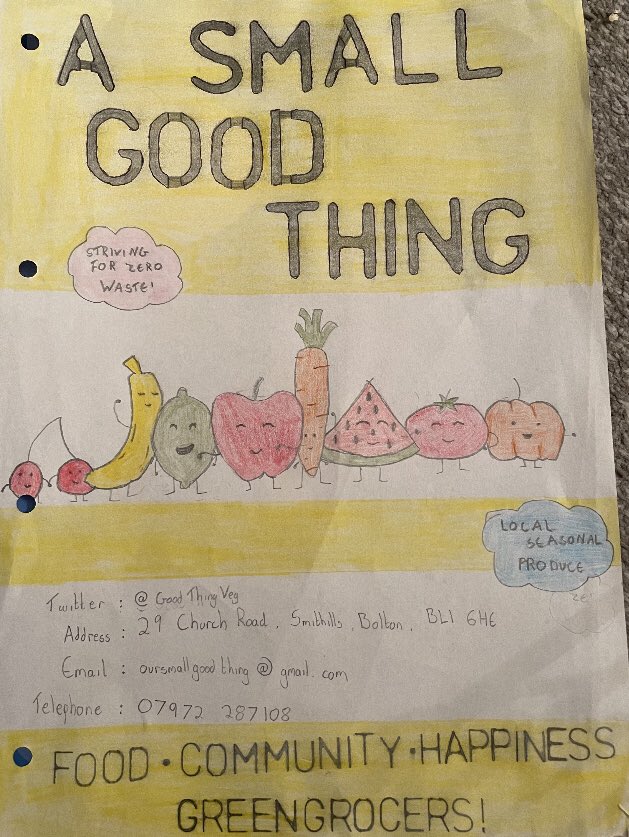 A SMALL
GOOD
THING
STRIVING
FOR ZERO
WASTE!
LOCAL
SEASONAL
PRODUCE
Twitter : @ Good Thing Veg
Address : 29 Church Road, Smithills, Bolton, BL1 6HE
Email : oursmallgoodthing @ gmail.com
Telephone : 07972 287108
FOOD · COMMUNITY · HAPPINESS
GREENGROCERS!